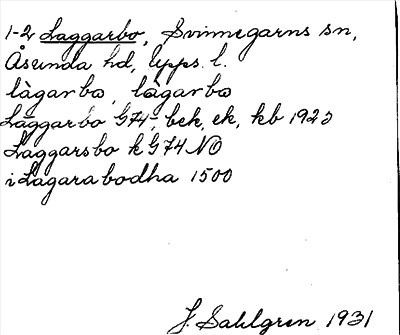 1-2 Laggarbo, Svinnegarns sn,
Åsunda hd, Upps. l.
làgarbo, làgarbo
Laggarbo G74, bek, ek, kb 1923
Laggarsbo k G74 NO
i Lagarabodha 1500
J. Sahlgren 1931